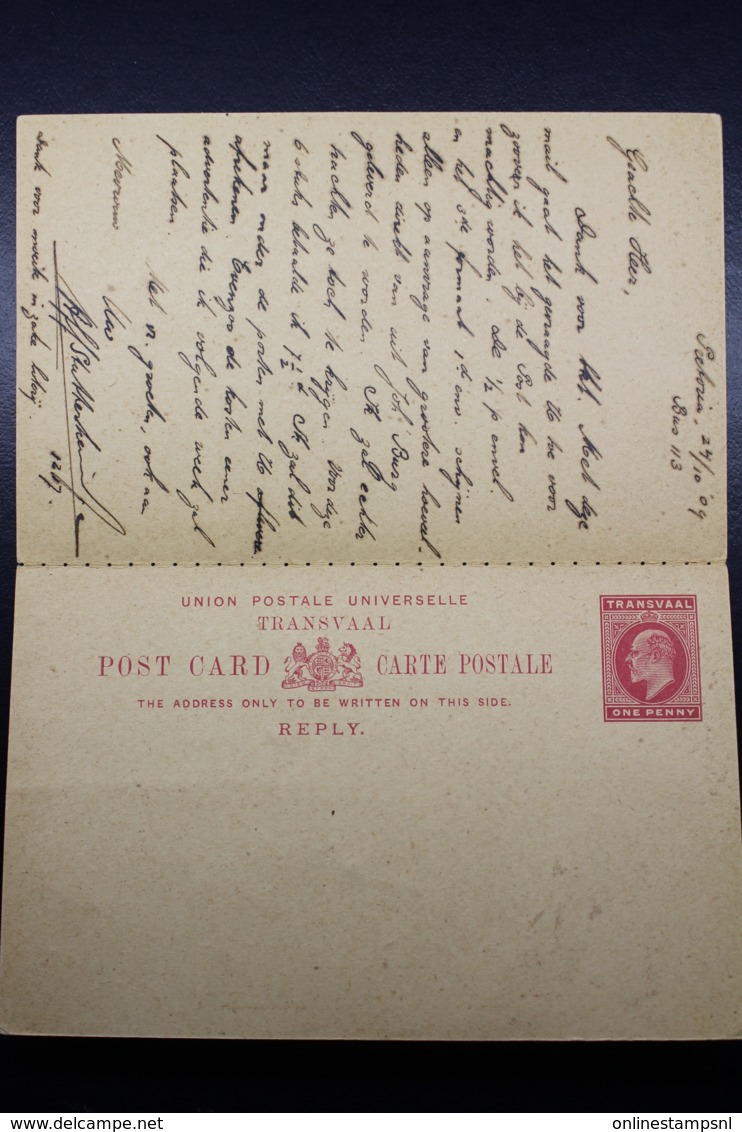 Pretoria, 24/10 '09
Bus 113
Geachte Heer,
Dank voor Met deze
mail gaat het gevraagde toe voor
zoover ik het bij de Post kon
machtig worden. De ½ p envel.
en het formaat env. schijnen
alleen op aanvrage van grootere hoeveel-
heden direkt van uit Joh. Burg
geleverd te worden. Ik zal echter
trachten ze toch te krijgen. Voor deze
6 stuks betaalde ik Ik zal dit
maar onder de porten met
afrekenen. Evenzoo de kosten eener
advertentie die ik volgende week zal
plaatsen.
Met vr. groeten, ook aan
Mevrouw
Uw
1267.
Dank voor moeite in zake
UNION POSTALE UNIVERSELLE
TRANSVAAL
POST CARD CARTE POSTALE
THE ADDRESS ONLY TO BE WRITTEN ON THIS SIDE.
REPLY.
TRANSVAAL
ONE PENNY
delcampe.net
onlinestampsnl